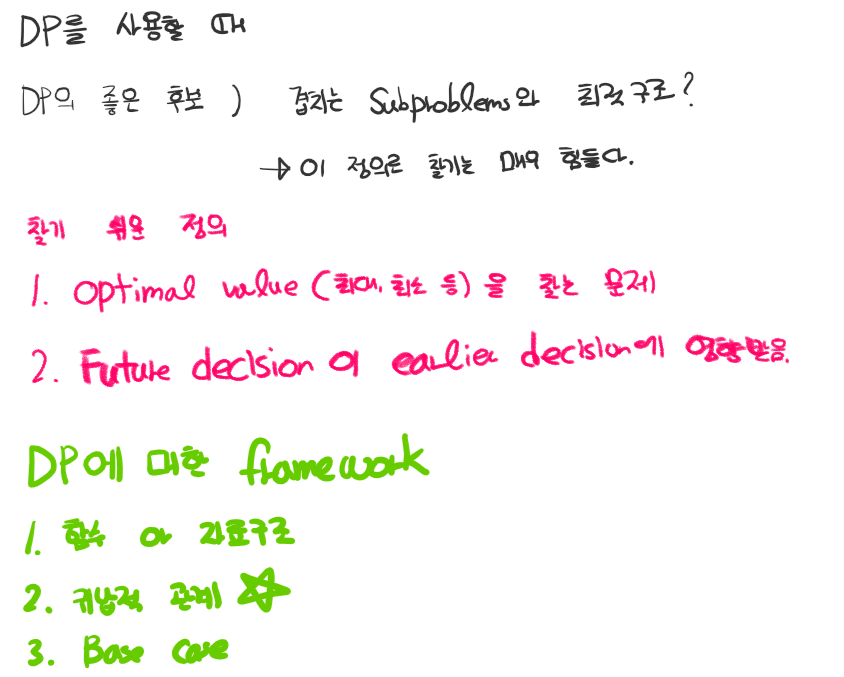 DP를 사용할 때
DP의 좋은 후보) 겹치는 Subproblems와 최적구조?
→ 이 정의로 찾기는 매우 힘들다.
찾기 쉬운 정의
1. Optimal value (최대, 최소 등)을 찾는 문제
2. Future decision이 earlier decision에 영향받음.
DP에 대한 framework
1. 함수 or 자료구조
2. 귀납적 관계 ☆
3. Base case